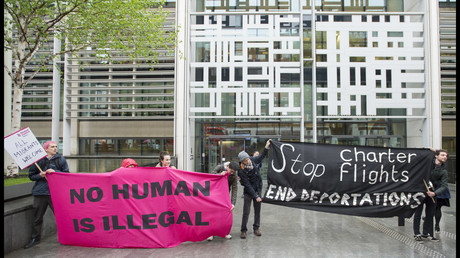 ALL
MIGRANTS
WELCOME
NO HUMAN
IS ILLEGAL
Stop Charter
Flights
END DEPORTATIONS